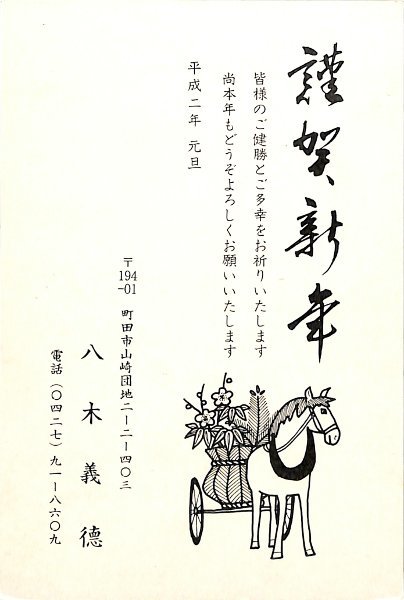 謹賀新年
皆様のご健勝とご多幸をお祈りいたします
尚本年もどうぞよろしくお願いいたします
平成二年 元旦
〒194-01 町田市山崎団地二ー二ー四〇三
八木義德
電話(〇四二七)九一ー八六〇九